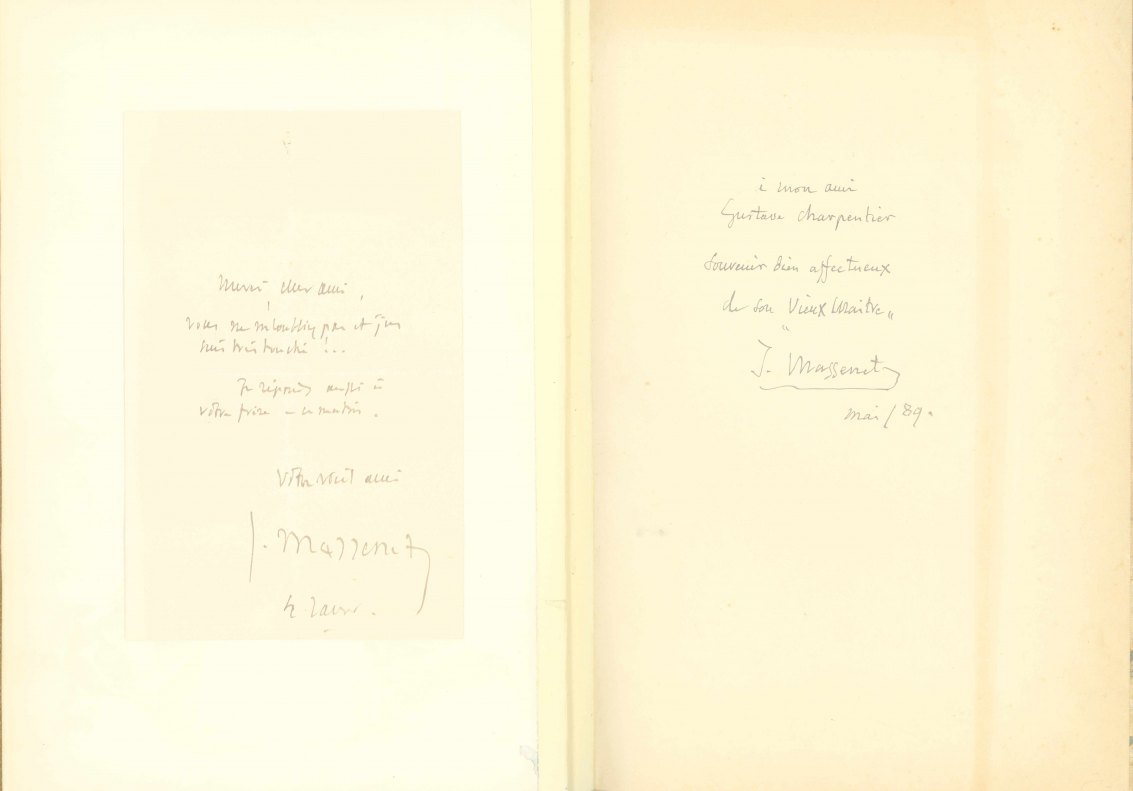 Merci cher ami,
vous ne m'oubliez pas et j'en
suis très touché !...
Je réponds aussi à
votre
Votre ami
J. Massenet
à mon ami
Gustave Charpentier
Souvenir bien affectueux
de son "Vieux Maître"
J. Massenet
mai / 89.